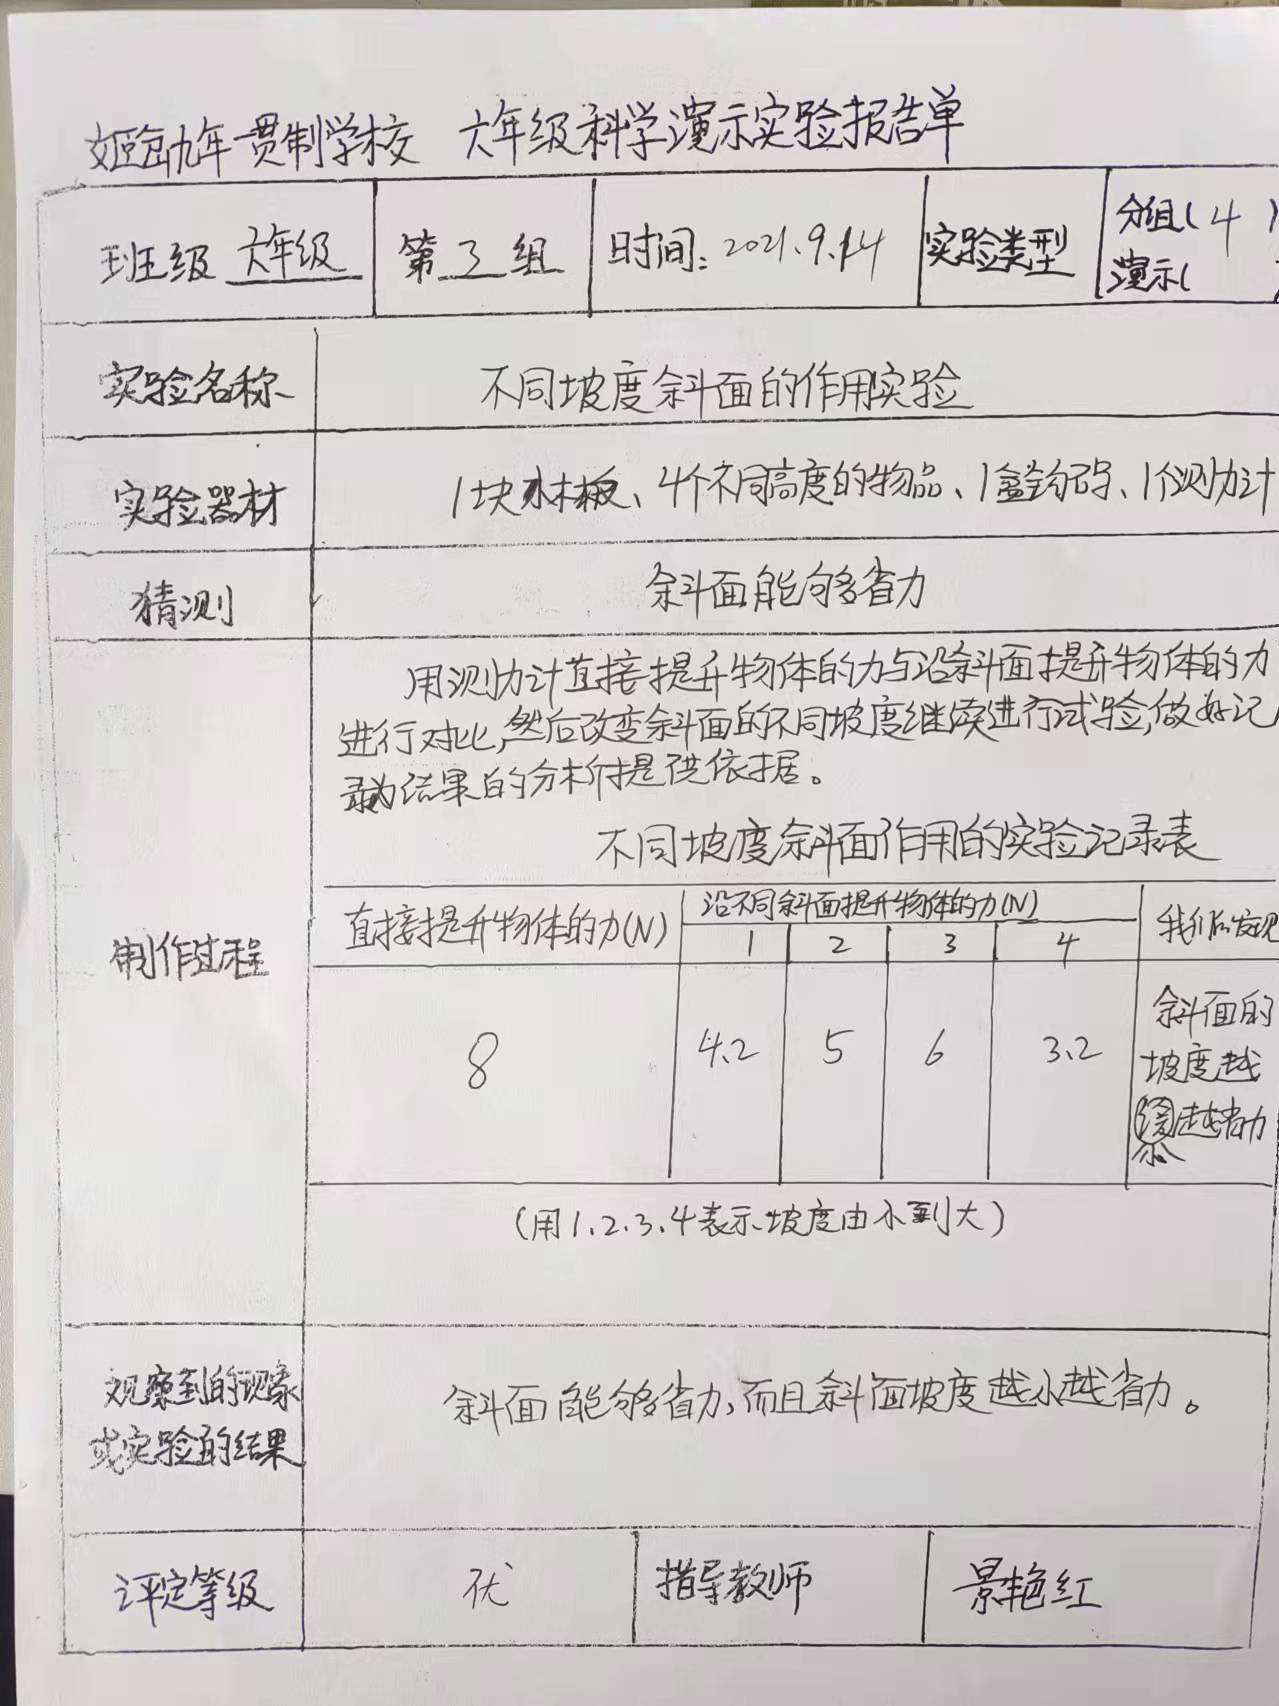 姬嵛九年一贯制学校 六年级科学演示实验报告单
班级 六年级 第 3 组 时间:2021.9.14 实验类型 分组(4)
演示( )
实验名称 不同坡度斜面的作用实验
实验器材 1块木板、4个不同高度的物品、1盒钩码、1个测力计
猜测 斜面能够省力
用测力计直接提升物体的力与沿斜面提升物体的力
进行对比,然后改变斜面的不同坡度继续进行试验,做好记
录为结果的分析提供依据。
不同坡度斜面作用的实验记录表
制作过程
直接提升物体的力(N) 沿不同斜面提升物体的力(N) 我们的发现
1 2 3 4
8 4.2 5 6 3.2
斜面的
坡度越
小越省力
(用1.2.3.4表示坡度由小到大)
观察到的现象
或实验的结果
斜面能够省力,而且斜面坡度越小越省力。
评定等级 优 指导教师 景艳红